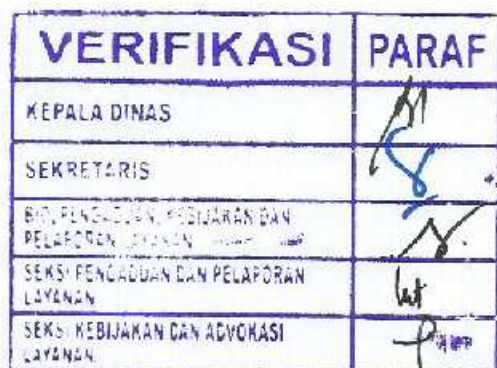 VERIFIKASI PARAF
KEPALA DINAS
SEKRETARIS
BID. PENGADUAN, KEBIJAKAN DAN
PELAPORAN LAYANAN
SEKSI PENGADUAN DAN PELAPORAN
LAYANAN
SEKSI KEBIJAKAN DAN ADVOKASI
LAYANAN